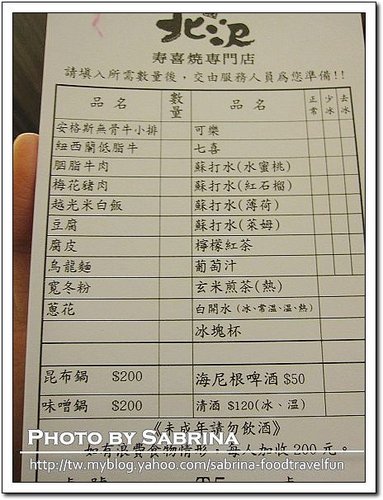 北沢
寿喜燒專門店
請填入所需數量後,交由服務人員為您準備!!
品名 數量 品名 正常 少冰 去冰
安格斯無骨牛小排 可樂
紐西蘭低脂牛 七喜
胭脂牛肉 蘇打水(水蜜桃)
梅花豬肉 蘇打水(紅石榴)
越光米白飯 蘇打水(薄荷)
豆腐 蘇打水(萊姆)
腐皮 檸檬紅茶
烏龍麵 葡萄汁
寬冬粉 玄米煎茶(熱)
蔥花 白開水(冰、常溫、溫、熱)
冰塊杯
昆布鍋 $200 海尼根啤酒 $50
味噌鍋 $200 清酒 $120(冰、溫)
《未成年請勿飲酒》
如有浪費食物情形,每人加收200元。
PHOTO BY SABRINA
http://tw.myblog.yahoo.com/sabrina-foodtravelfun